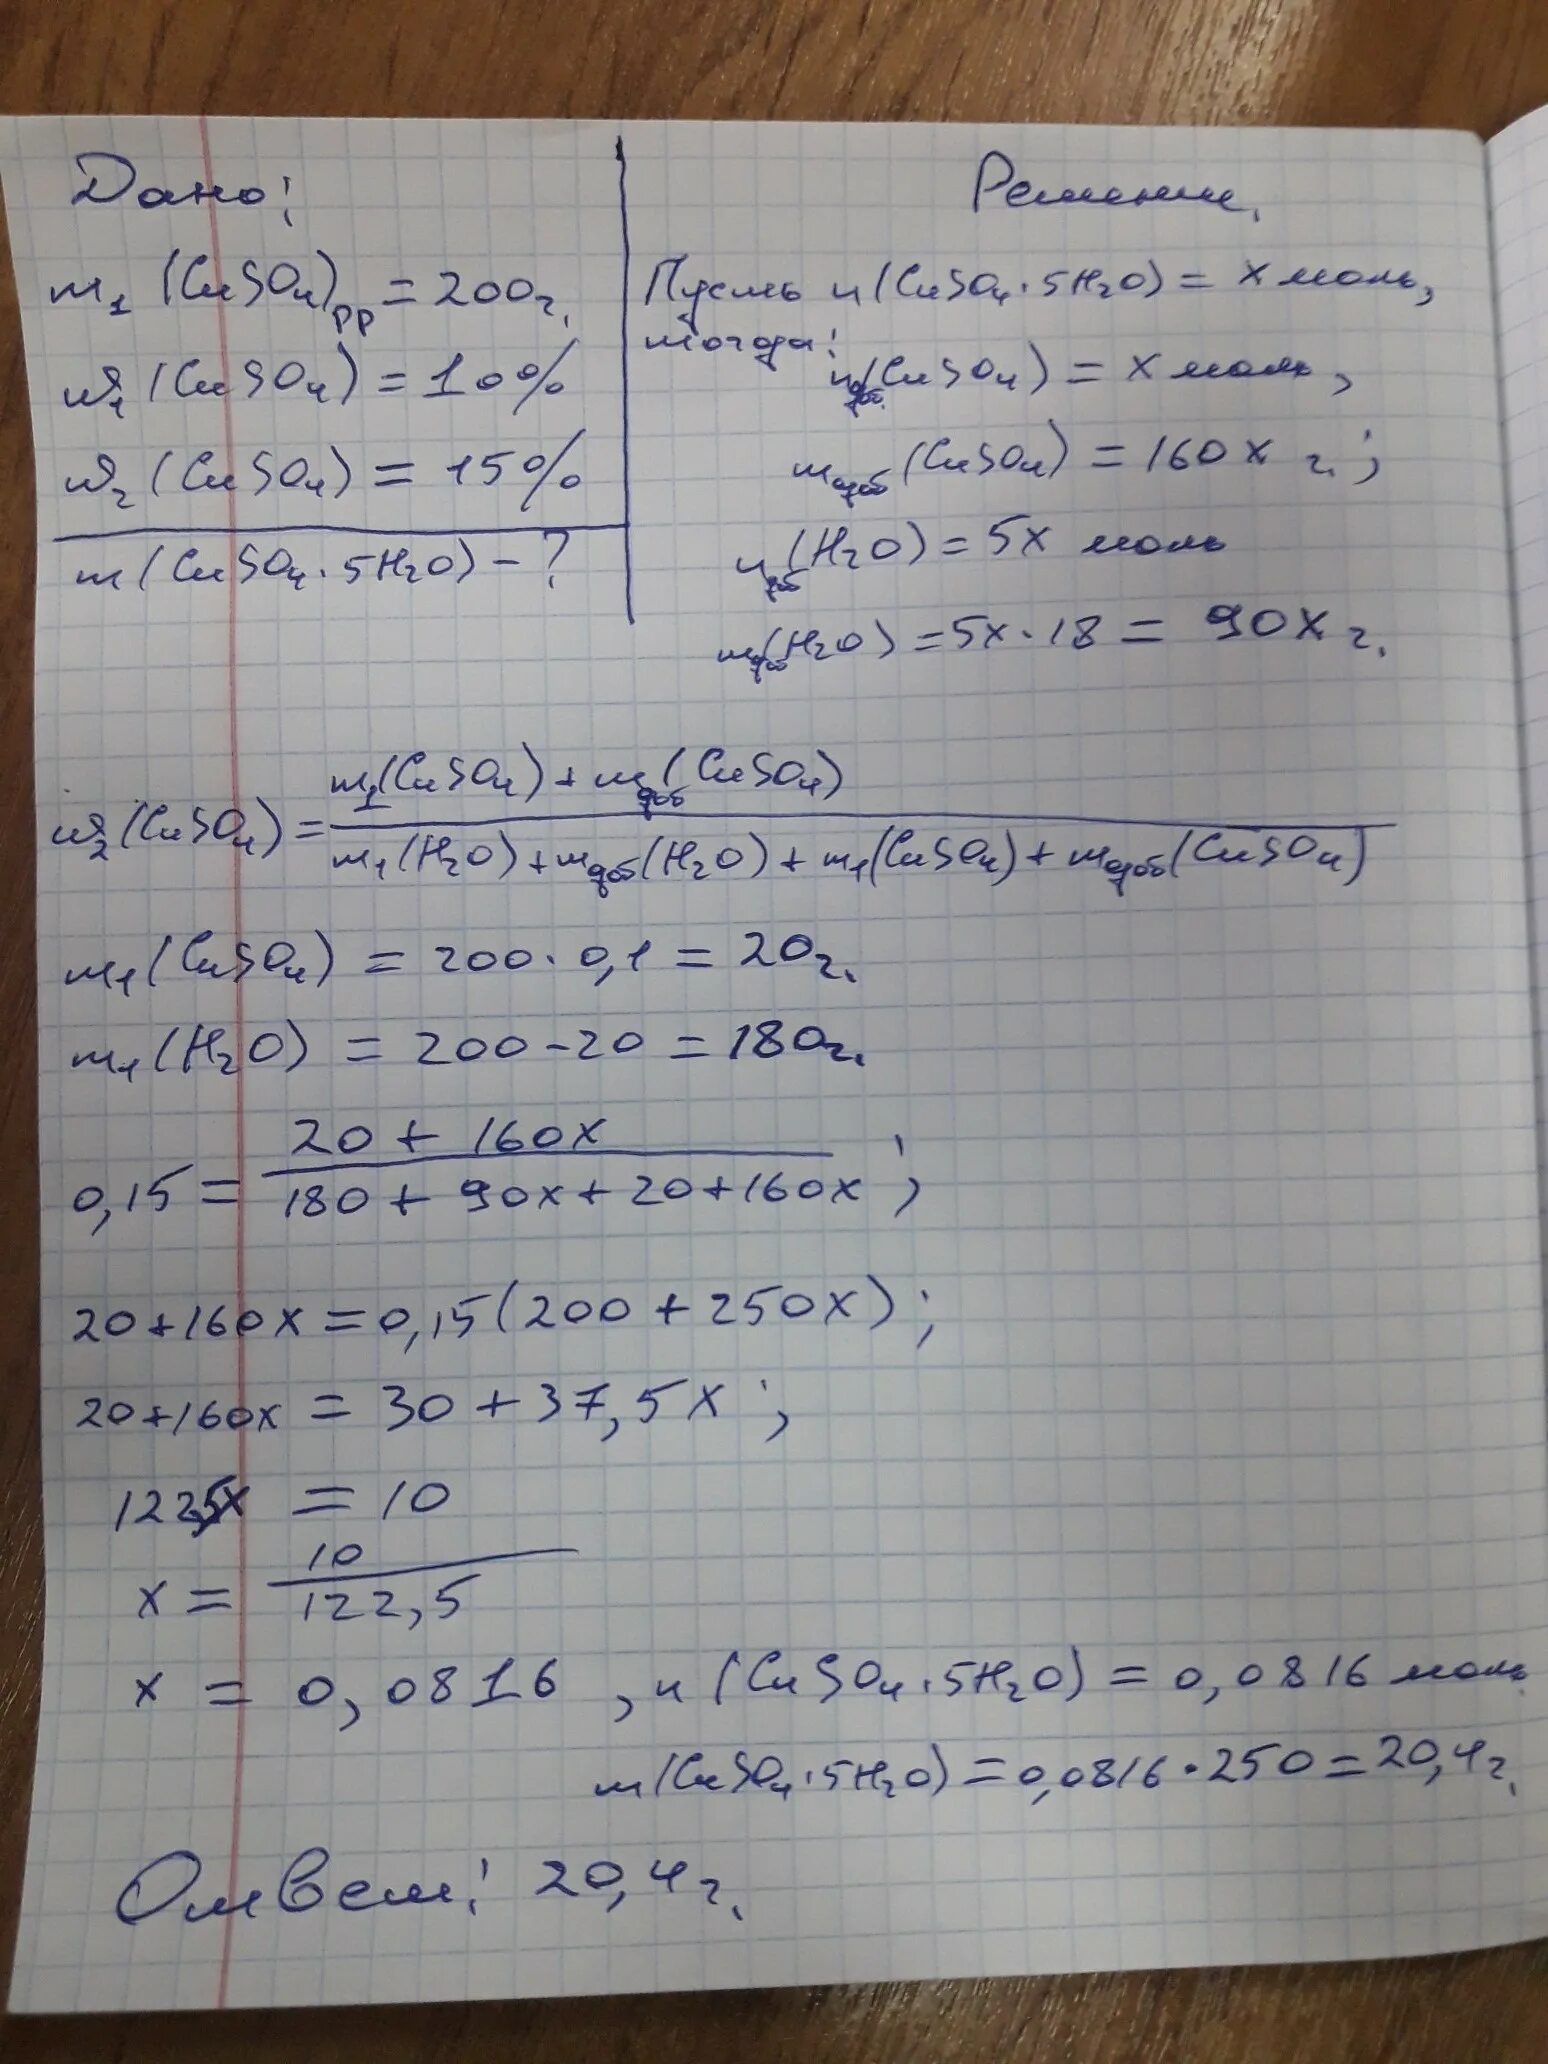 Дано:
m₁ (CuSO₄)рр = 200г.
ω₁ (CuSO₄) = 10%
ω₂ (CuSO₄) = 15%
m (CuSO₄·5H₂O) - ?
Решение.
Пусть n (CuSO₄·5H₂O) = x моль,
тогда:
nдоб(CuSO₄) = x моль,
mдоб(CuSO₄) = 160x г.;
nдоб(H₂O) = 5x моль
mдоб(H₂O) = 5x·18 = 90x г.
ω₂(CuSO₄) = (m₁(CuSO₄) + mдоб(CuSO₄)) / (m₁(H₂O) + mдоб(H₂O) + m₁(CuSO₄) + mдоб(CuSO₄))
m₁(CuSO₄) = 200·0,1 = 20г.
m₁(H₂O) = 200-20 = 180г.
0,15 = (20 + 160x) / (180 + 90x + 20 + 160x);
20+160x = 0,15(200 + 250x);
20+160x = 30 + 37,5x;
122,5x = 10
x = 10 / 122,5
x = 0,0816, n (CuSO₄·5H₂O) = 0,0816 моль
m (CuSO₄·5H₂O) = 0,0816·250 = 20,4г.
Ответ: 20,4г.